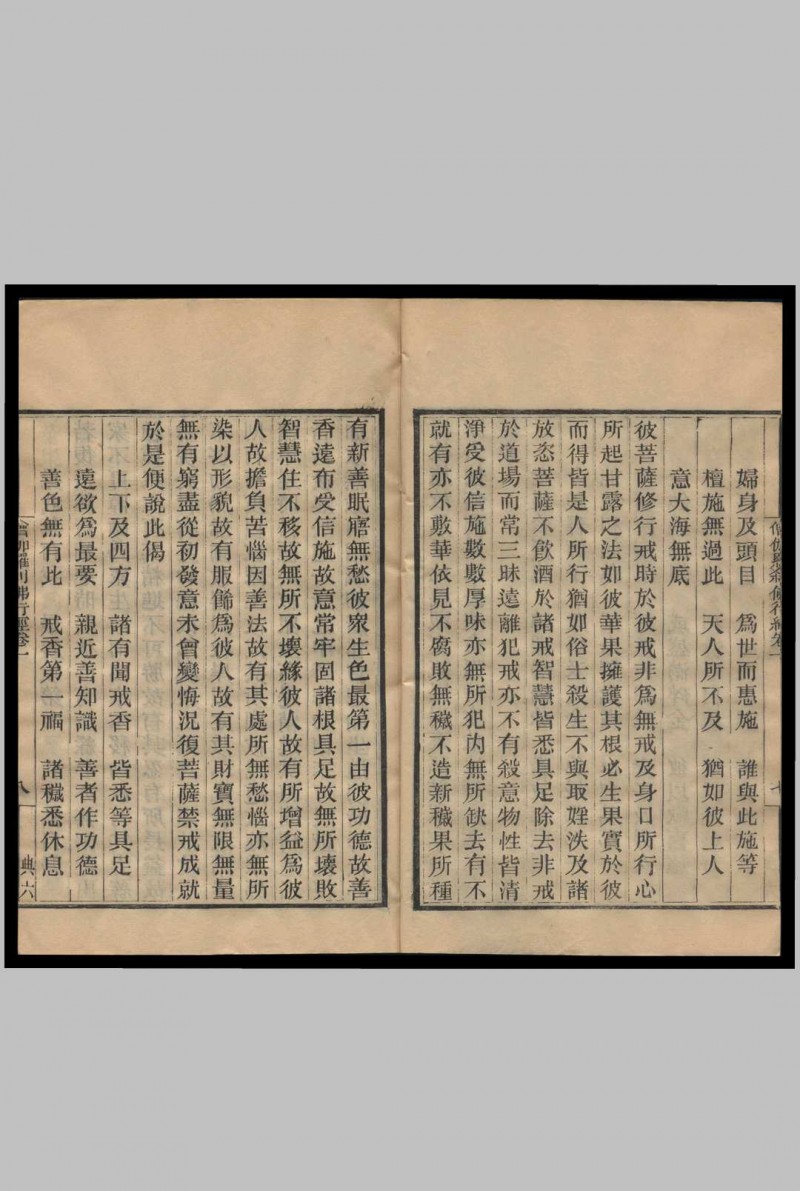 婦身及頭目　為世而惠施　誰與此施等
檀施無過此　天人所不及　猶如彼上人
意大海無底
彼菩薩修行戒時於彼戒非為無戒及身口所行心
所起甘露之法如彼華果擁護其根必生果實於彼
而得皆是人所行猶如俗士殺生不與取婬泆及諸
放恣菩薩不飲酒於諸戒智慧皆悉具足除去非戒
於道場而常三昧遠離犯戒亦不有殺意物性皆清
淨受彼信施數數厚味亦無所犯內無所缺去有不
就有亦不敷華依見不腐敗無穢不造新穢果所種
有新善眠寤無愁彼眾生色最第一由彼功德故善
香遠布受信施故意常牢固諸根具足故無所壞敗
智慧住不移故無所不壞緣彼人故有所增益為彼
人故擔負苦惱因善法故有其處所無愁惱亦無所
染以形貌故有服飾為彼人故有其財寶無限無量
無有窮盡從初發意未曾變悔況復菩薩禁戒成就
於是便說此偈
上下及四方　諸有聞戒香　皆悉等具足
遠欲為最要　親近善知識　善者作功德
善色無有此　戒香第一福　諸穢悉休息
卷一　八　典六